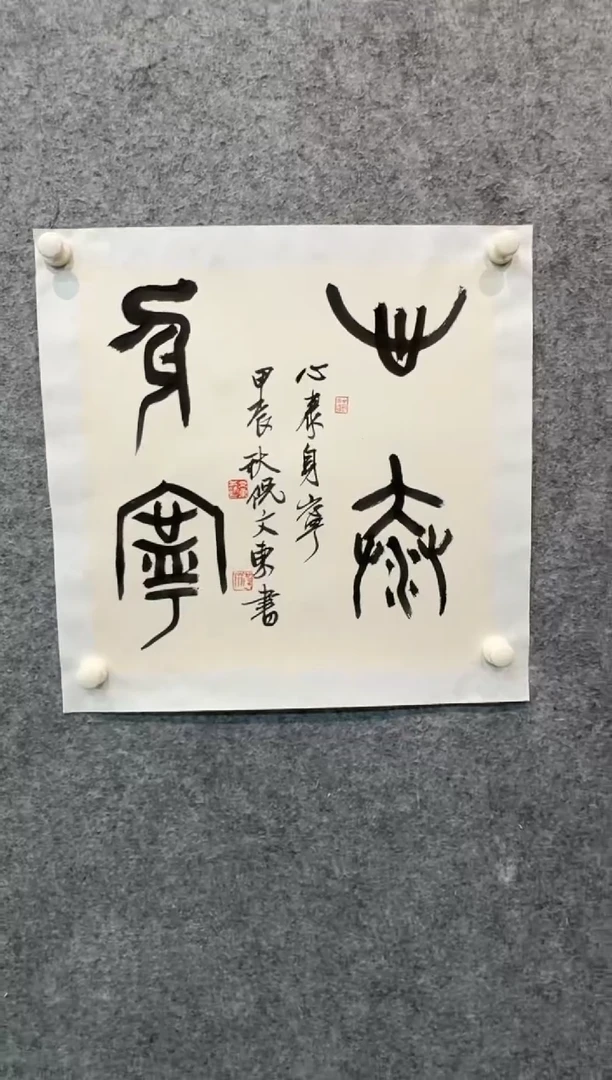 心泰
身寧
心泰身寧
甲辰秋倪文東書